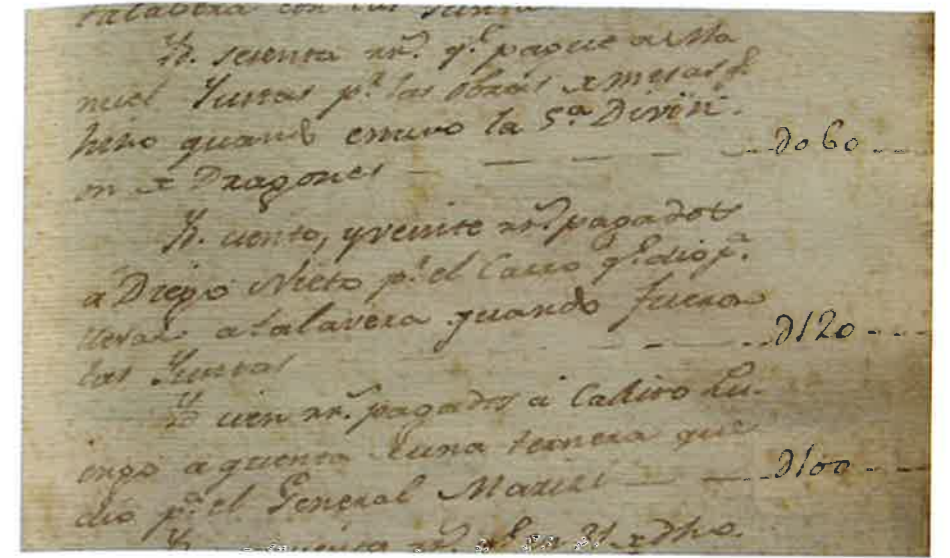 talabera con las Juntas
Yt. sesenta rr.s q.e pague a Ma
nuel Juntas p.r las obras de mesas q.e
hizo quando estuvo la 5.a Divisi
on de Dragones — — — — — ... do60 - - -
Yt. ciento, y veinte rr.s pagados
a Diego Nieto p.r el Carro q.e dio p.a
llevar a talavera quando fueron
las Juntas - - - - ... d120 - - -
Yt. cien rr.s pagados a Calisto Lu-
engo a quenta de una ternera que
dio p.a el General Marizi — — ... d100 - - -